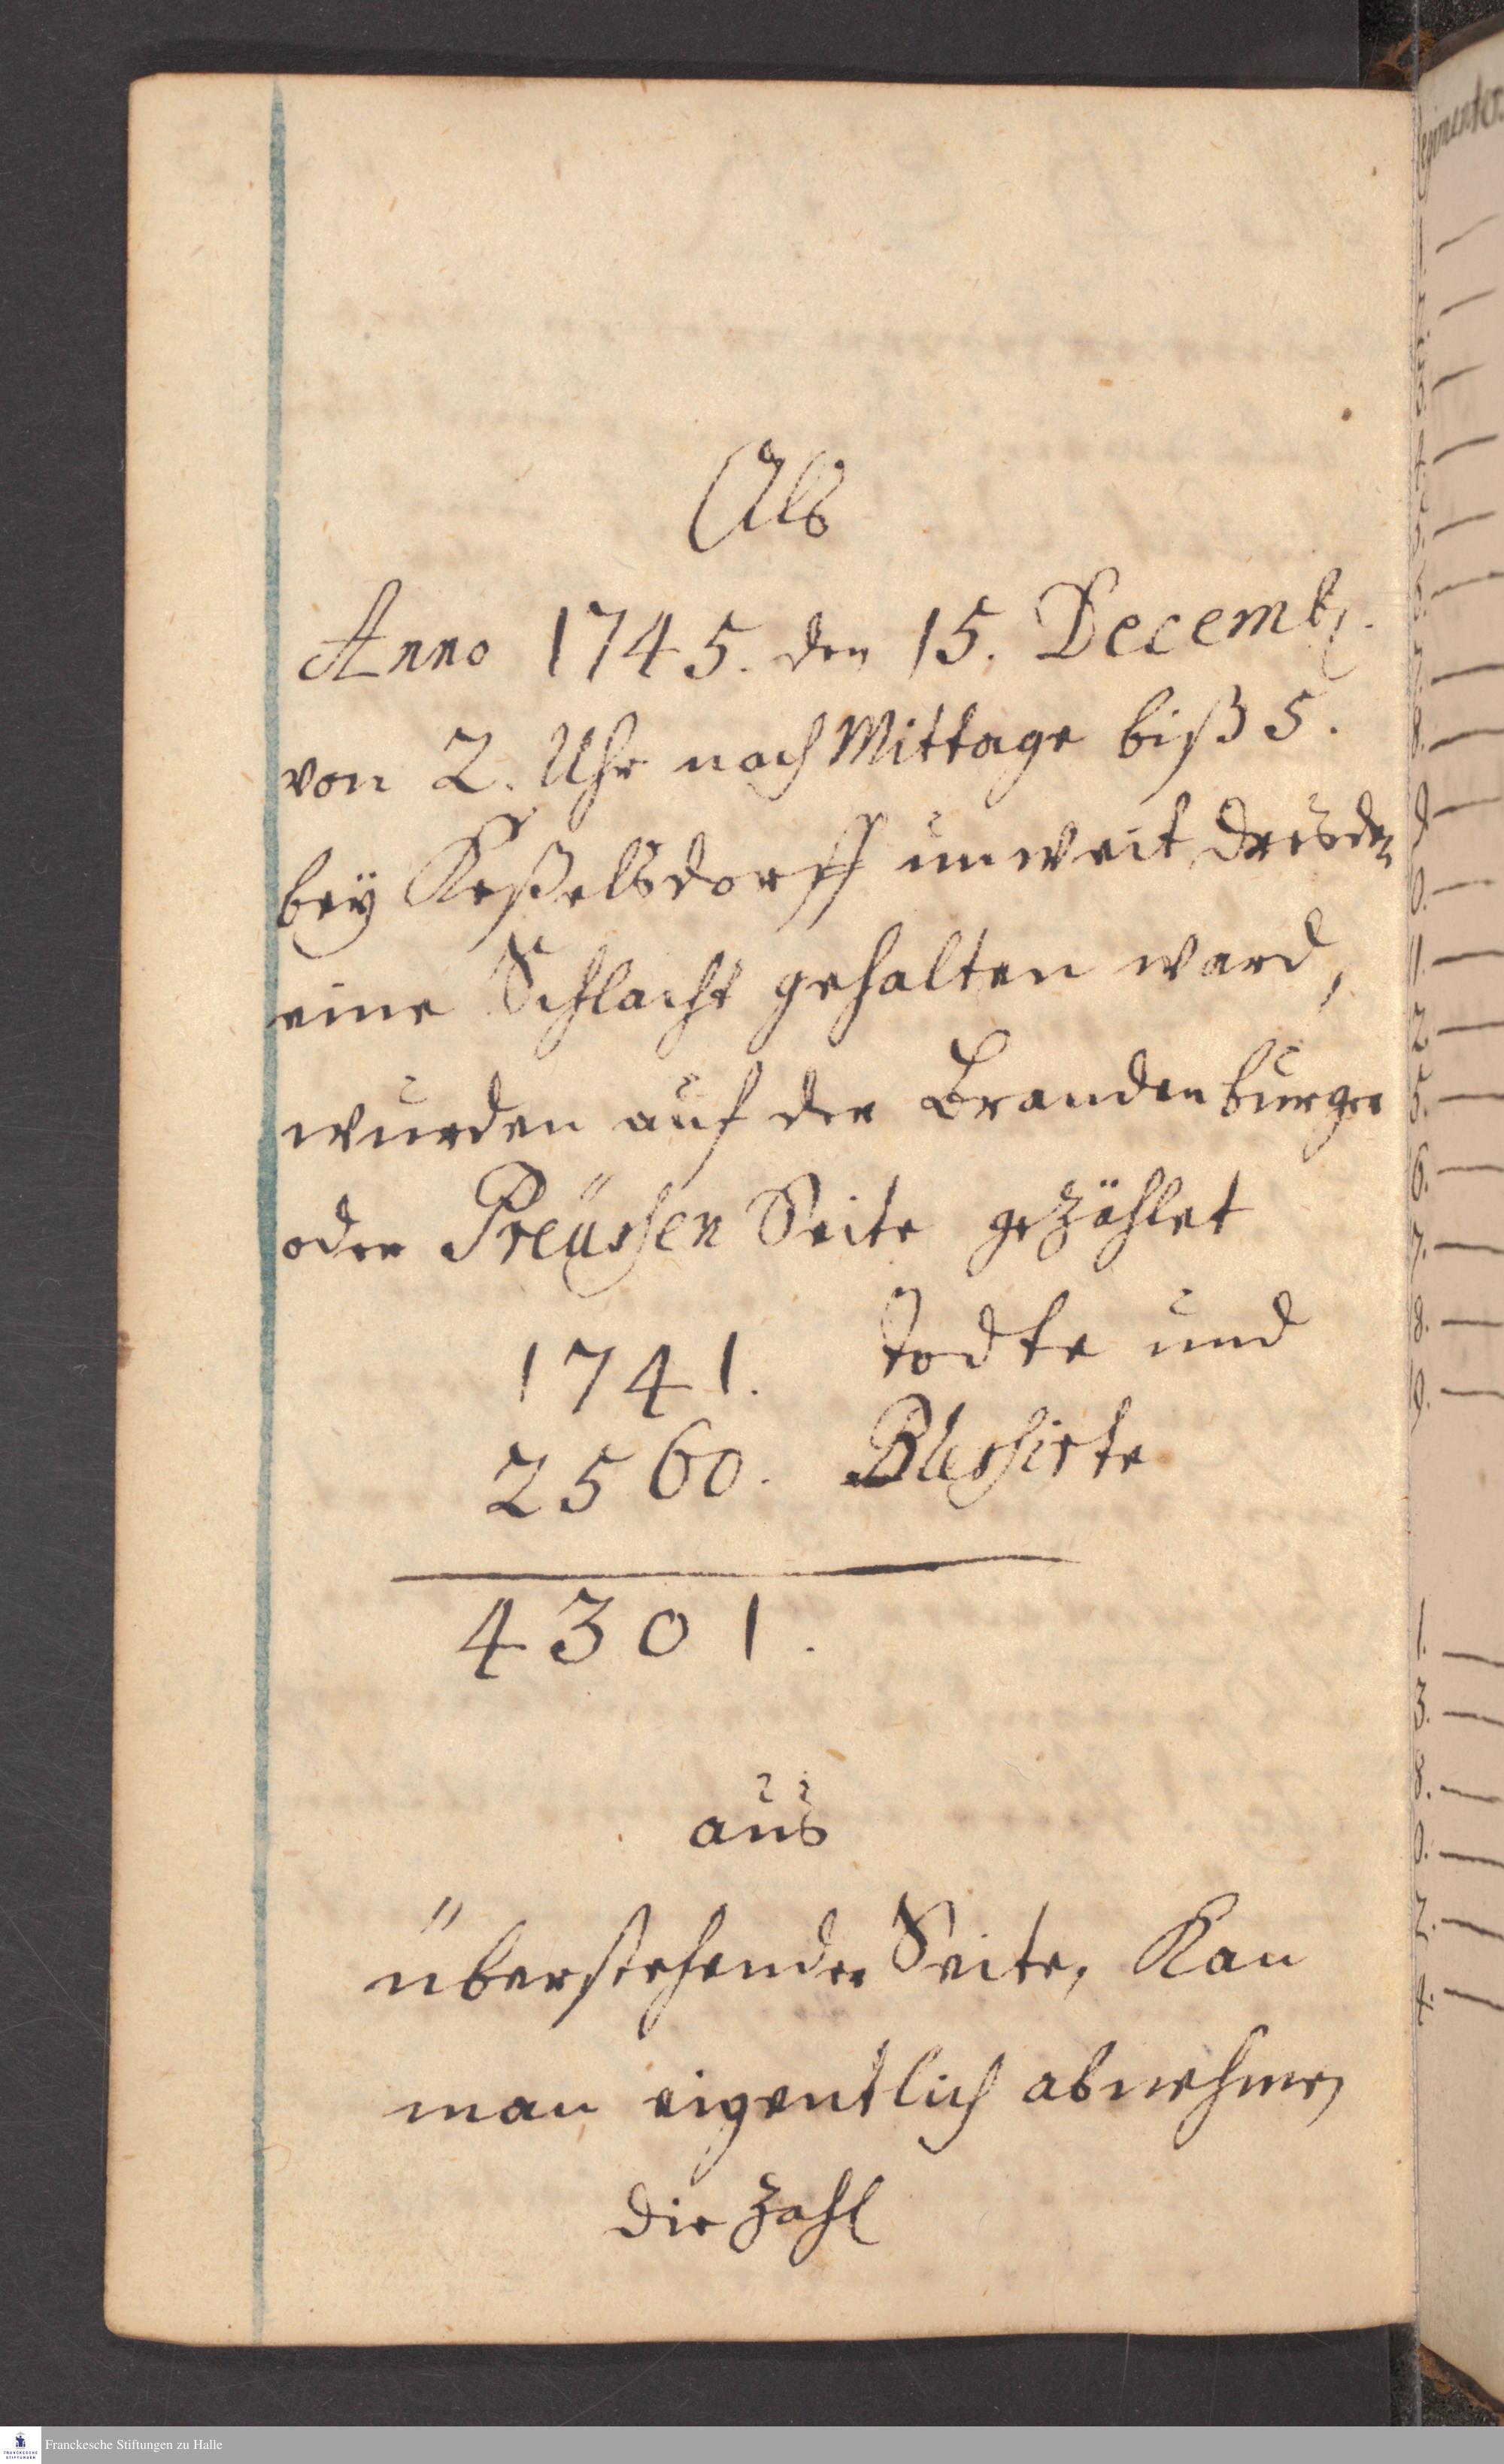 Als
Anno 1745. den 15. Decembr.
von 2. Uhr nach Mittage biß 5.
bey Keßelsdorff unweit Dresden
eine Schlacht gehalten ward,
wurden auf der Brandenburger
oder Preüssen Seite gezählet
1741. Todte und
2560. Blessirte
4301.
aus
überstehender Seite, Kan
man eigentlich abnehmen
die Zahl
Regimenter.
1.
2.
3.
4.
5.
6.
7.
8.
9.
10.
11.
12.
15.
16.
17.
18.
19.
Franckesche Stiftungen zu Halle